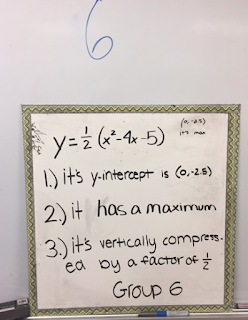 6
(0,-2.5)
it's max
y = 1/2 (x²-4x-5)
1.) it's y-intercept is (0,-2.5)
2.) it has a maximum
3.) it's vertically compress-
ed by a factor of 1/2
Group 6